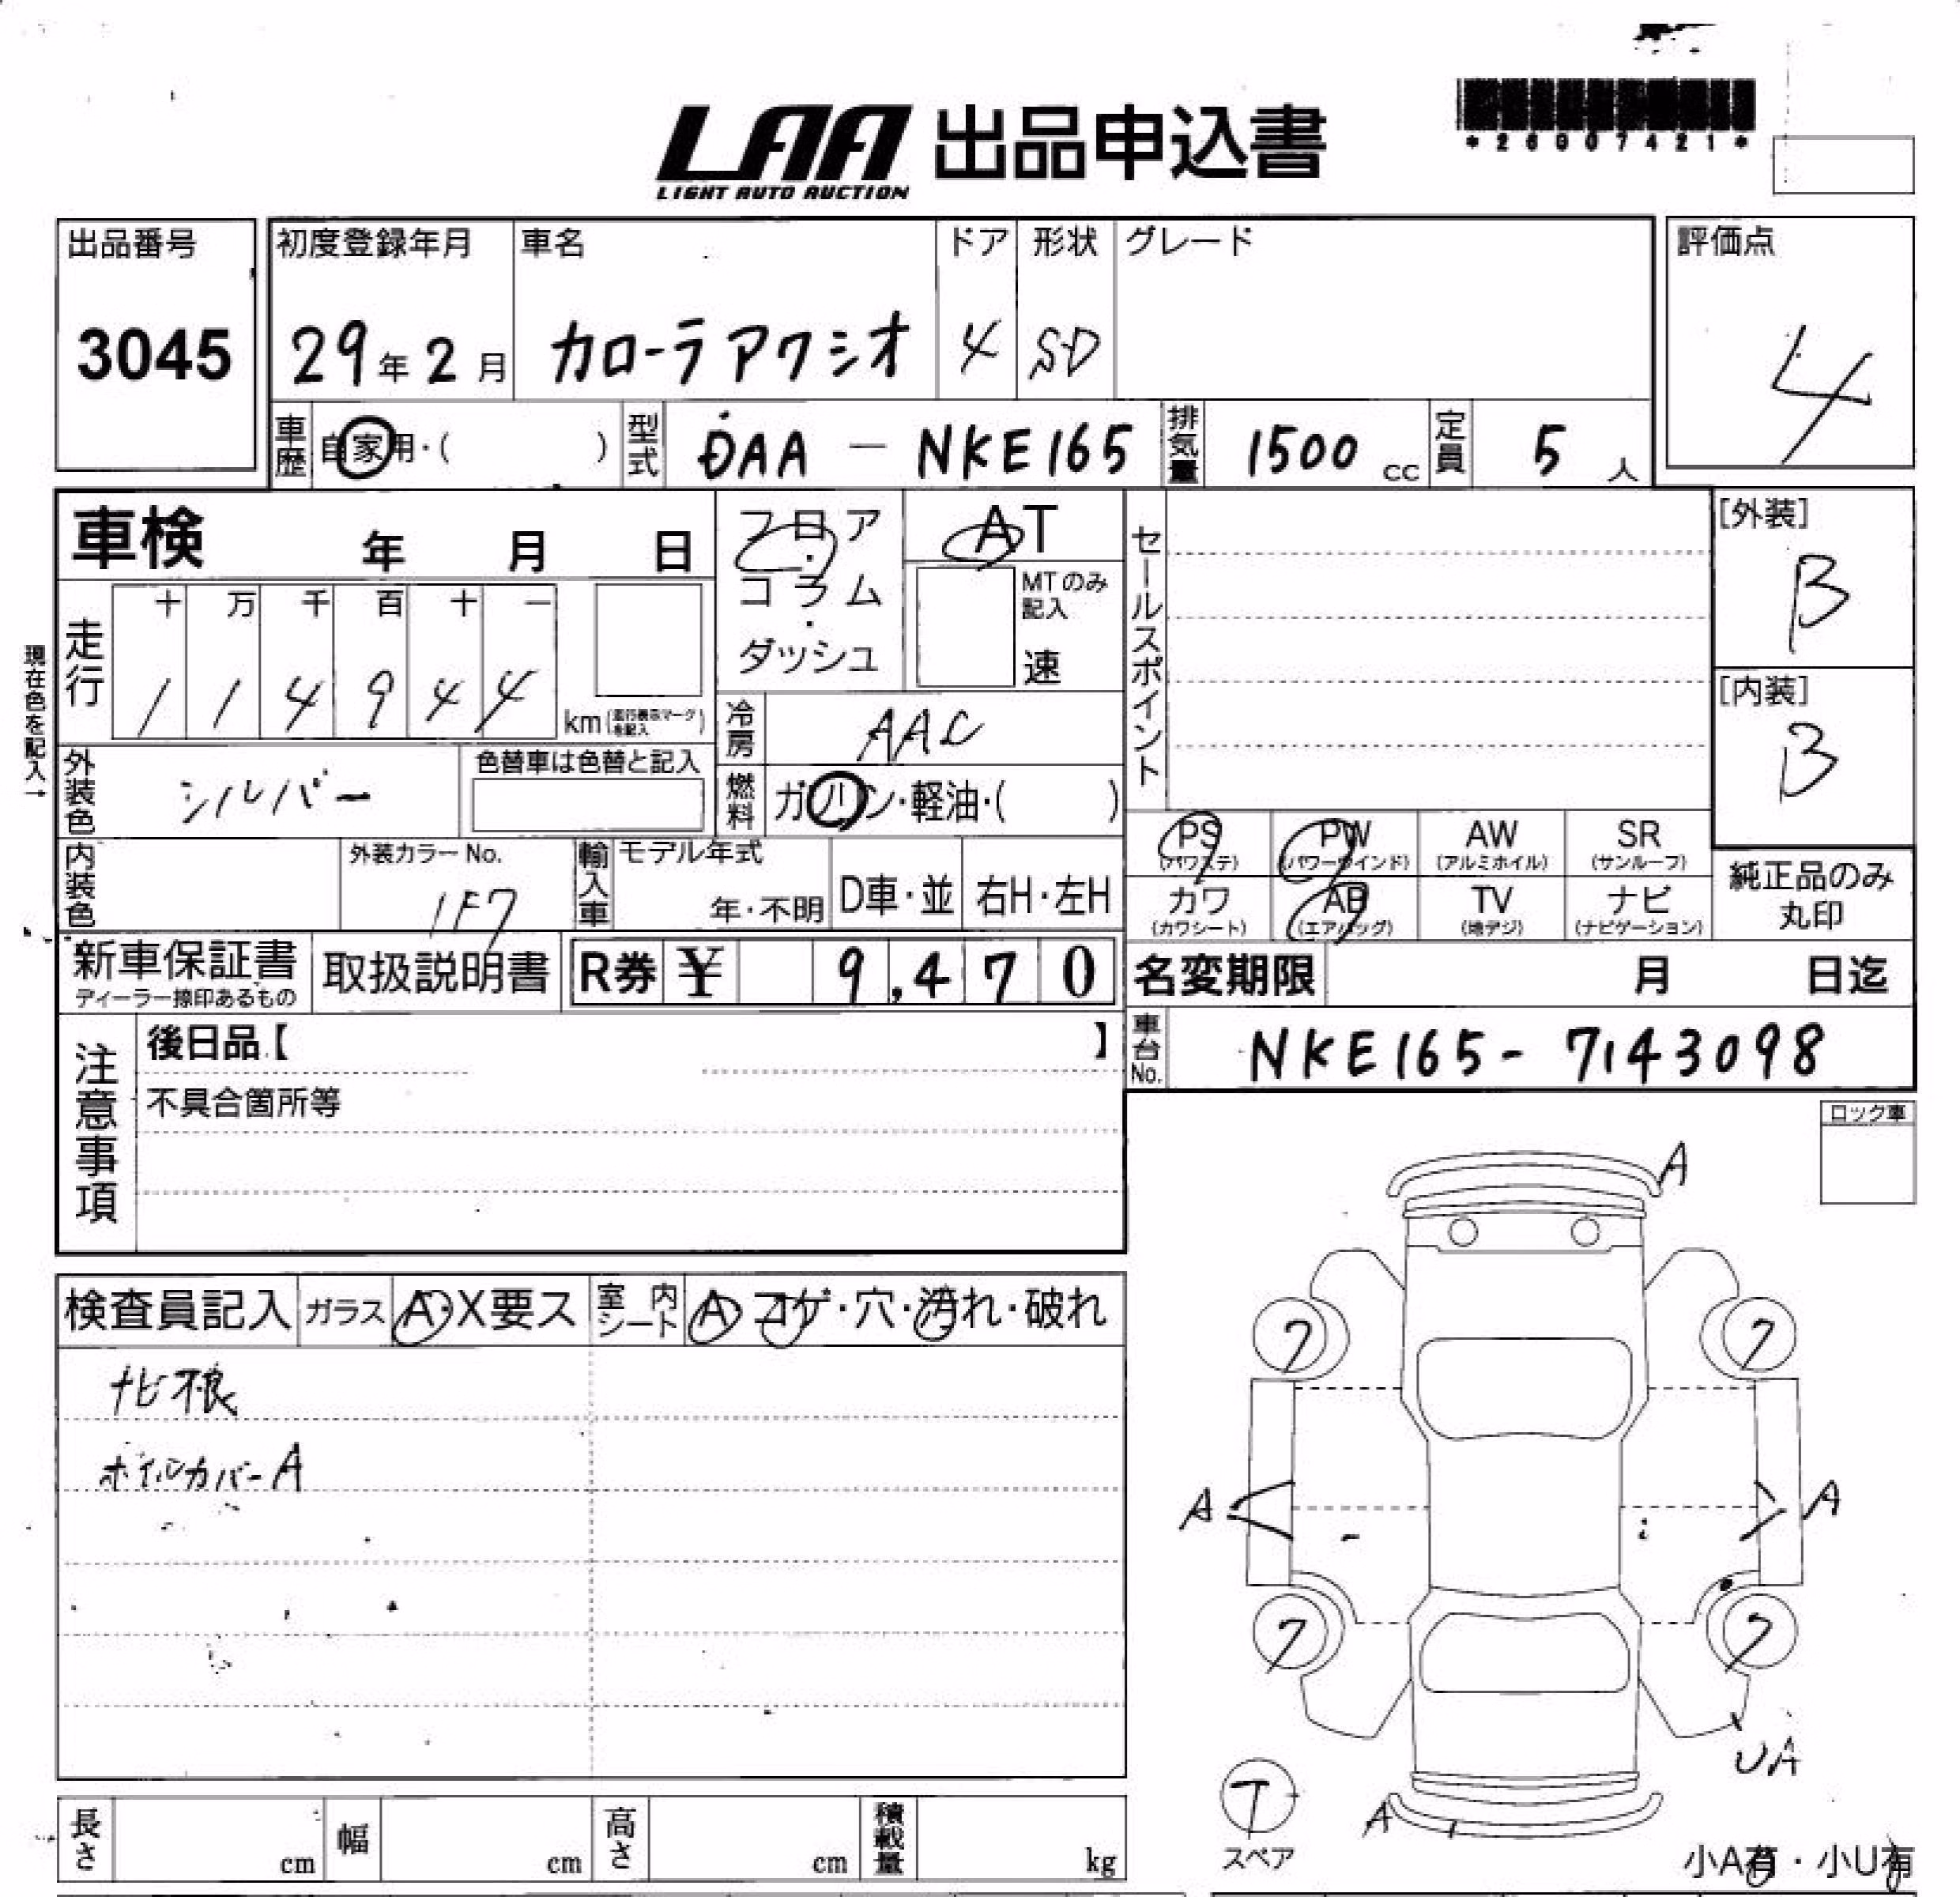 LAA 出品申込書
LIGHT AUTO AUCTION
*26907421*
出品番号 初度登録年月 車名 ドア 形状 グレード 評価点
3045 29年2月 カローラアクシオ 4 SD 4
車歴 自家用・( ) 型式 DAA - NKE165 排気量 1500 cc 定員 5 人
車検 年 月 日
フロア・コラム・ダッシュ
AT
MTのみ記入
速
セールスポイント
[外装]
B
[内装]
B
現在色を記入→
走行 十 万 千 百 十 一
1 1 4 9 4 4 km (走行表示マークを記入)
冷房 AAC
外装色 シルバー 色替車は色替と記入
燃料 ガソリン・軽油・( )
内装色 外装カラーNo. 1F7 輸入車 モデル年式 年・不明 D車・並 右H・左H
PS (パワステ) PW (パワーウインド) AW (アルミホイル) SR (サンルーフ)
カワ (カワシート) AB (エアバッグ) TV (地デジ) ナビ (ナビゲーション)
純正品のみ丸印
新車保証書 取扱説明書 R券 ¥ 9,470 名変期限 月 日迄
ディーラー捺印あるもの
注意事項
後日品【 】
車台No. NKE165-7143098
不具合箇所等
ロック車
検査員記入 ガラス A・X要ス 室内シート A・コゲ・穴・汚れ・破れ
ナビ板
ホイルカバーA
A
7 7
A A
7 7
UA
T
スペア
A
小A有・小U有
長さ cm 幅 cm 高さ cm 積載量 kg